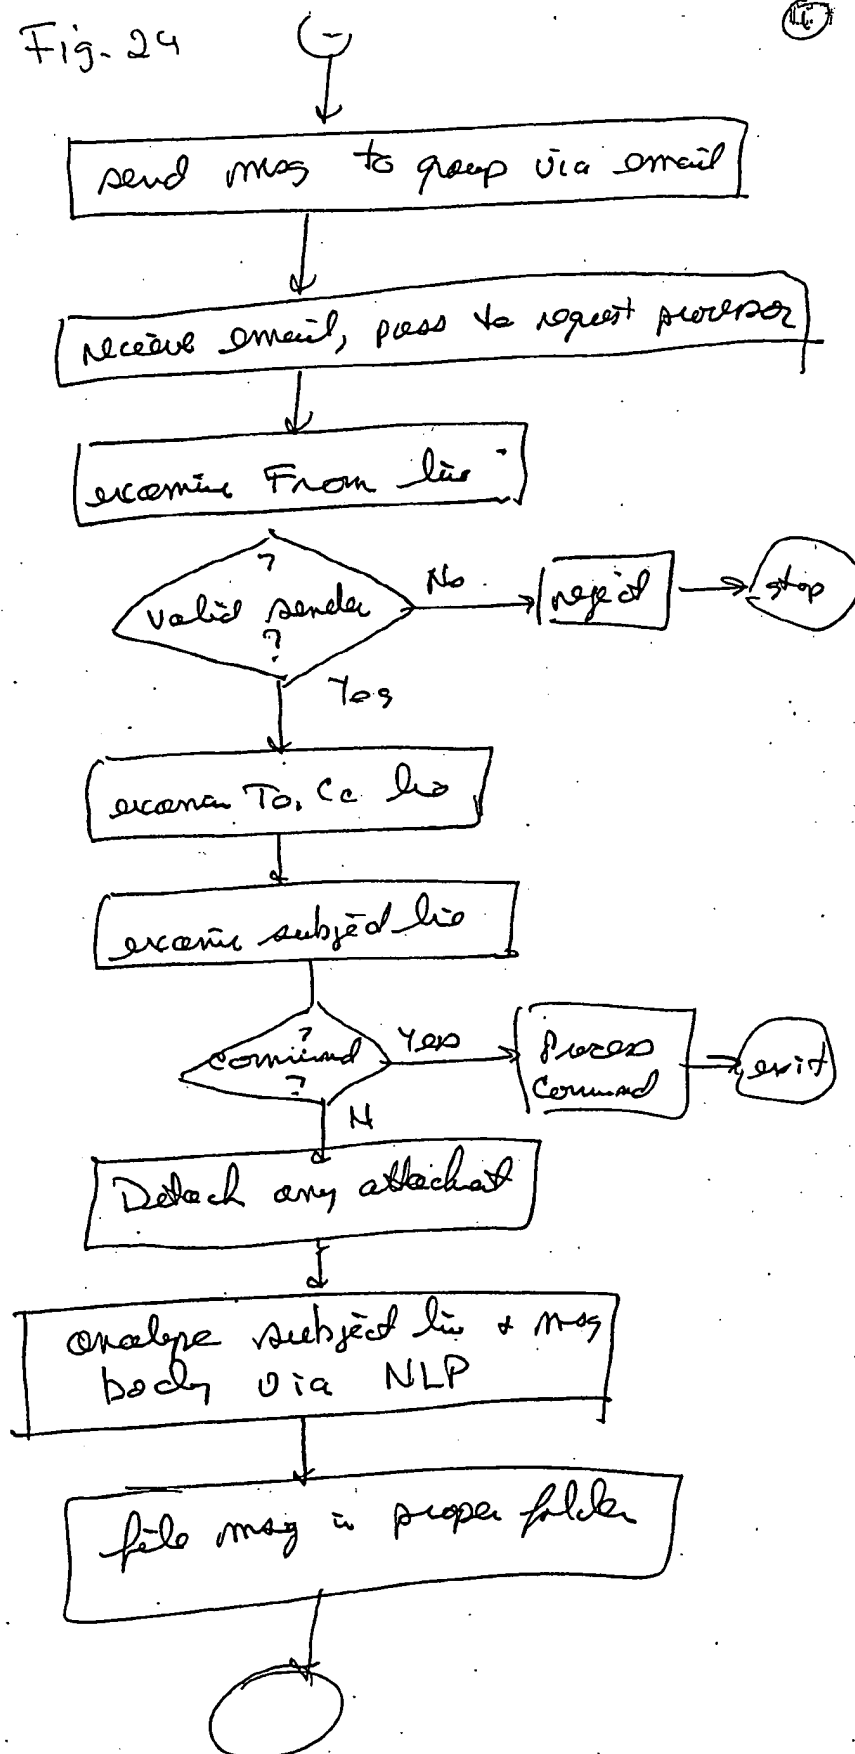 Fig. 24
send msg to group via email
receive email, pass to request processor
examine From line
?
valid sender
?
No
reject
stop
Yes
examine To, Cc line
examine subject line
?
command
?
Yes
Process
Command
exit
N
Detach any attachment
analyze subject line + msg
body via NLP
file msg in proper folder